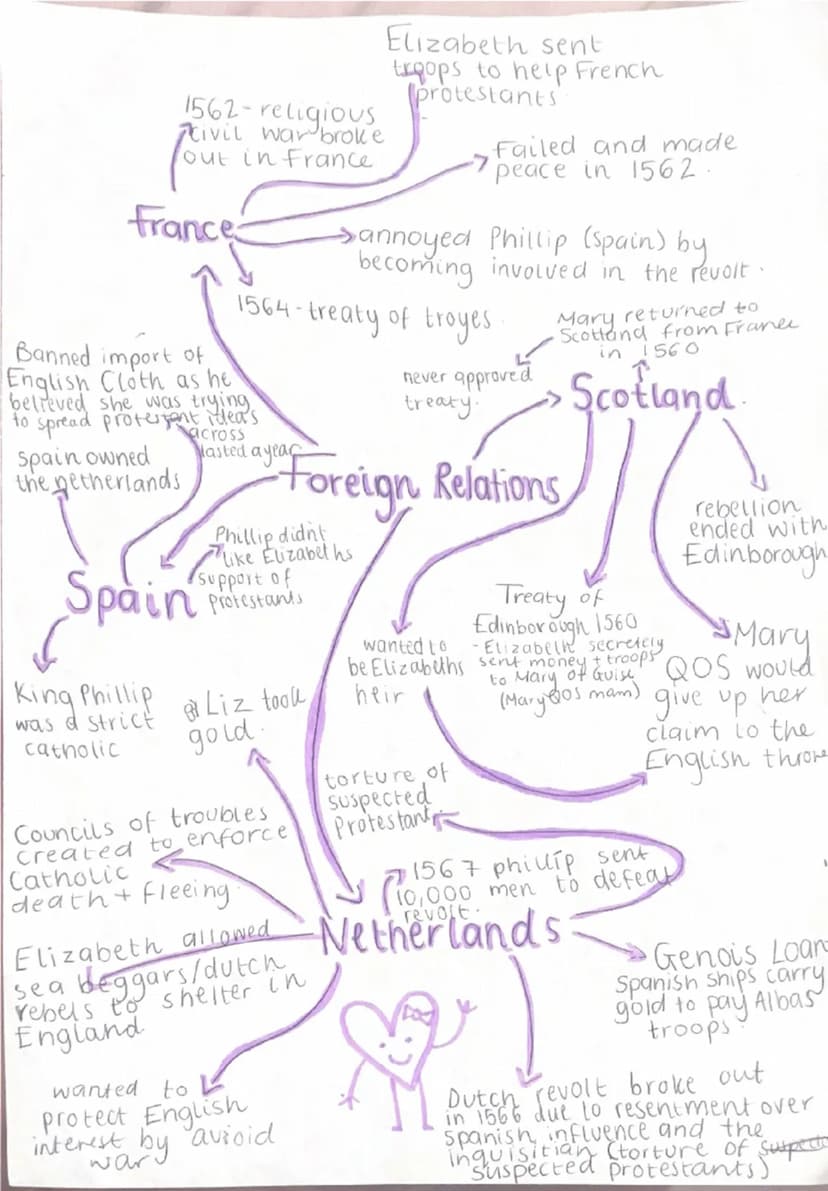 Elizabeth sent
troops to help French
protestants
1562-religious
civil war broke
out in france
Failed and made
peace in 1562.
France
annoyed Phillip (spain) by
becoming involved in the revolt.
1564-treaty of troyes
Mary returned to
Scotland from France
in 1560
never approved
treaty.
Scotland.
Banned import of
English Cloth as he
believed she was trying
to spread protestant ideas
across
lasted a year
spain owned
the netherlands
Foreign Relations
rebellion
ended with
Edinborough
Phillip didn't
like Elizabeths
support of
protestants
Spain
Treaty of
Edinborough 1560
-Elizabeth secretely
sent money + troops
to Mary of Guise
(Mary QOS mam)
wanted to
be Elizabeths
heir
Mary
QOS would
give up her
claim to the
English throne
King Phillip
was a strict
catholic
Liz took
gold.
torture of
suspected
Protestant
Councils of troubles
created to enforce
Catholic
death + fleeing.
1567 phillip sent
10,000 men to defeat
revolt.
Netherlands
Elizabeth allowed
sea beggars/dutch
rebels to shelter in
England
Genois Loan
Spanish ships carry
gold to pay Albas
troops.
wanted to
protect English
interest by avioid
war
Dutch revolt broke out
in 1566 due to resentment over
spanish influence and the
inquisitian (torture of
suspected protestants)